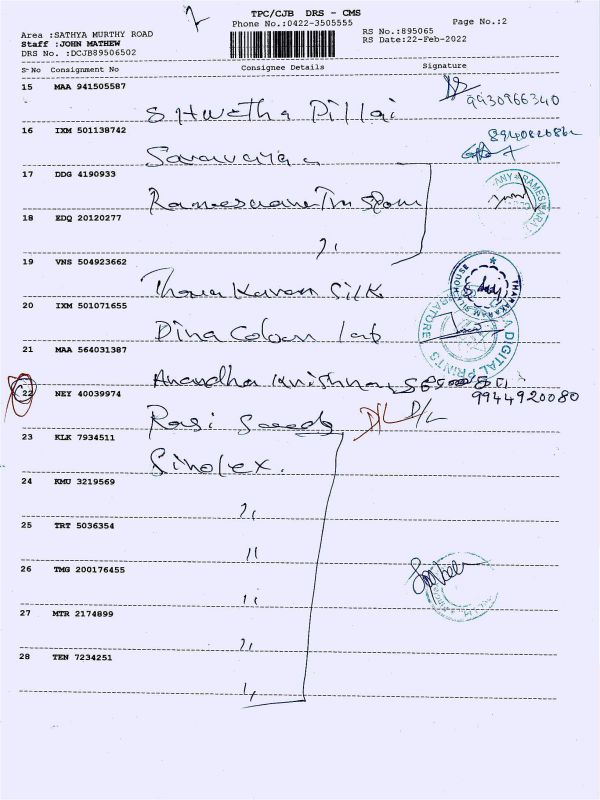 TPC/CJB DRS - CMS
Phone No.:0422-3505555
Page No.:2
Area :SATHYA MURTHY ROAD
RS No.:895065
Staff :JOHN MATHEW
RS Date:22-Feb-2022
DRS No. :DCJB89506502
S No Consignment No Consignee Details Signature
15 MAA 941505587
Shwetha Pillai
9930966340
16 IXM 501138742
17 DDG 4190933
RAMESWARA
18 EDQ 20120277
19 VNS 504923662
Tharakaram Silk
THARAKARAM SILK HOUSE
20 IXM 501071655
Dina Colour lab
DIGITAL PRINTS
21 MAA 564031387
Anandha Krishnan
22 NEY 40039974
9944920080
Rasi Seeds D/L D/L
23 KLK 7934511
Sinolex.
24 KMU 3219569
"
25 TRT 5036354
"
26 TMG 200176455
"
27 MTR 2174899
"
28 TEN 7234251
"